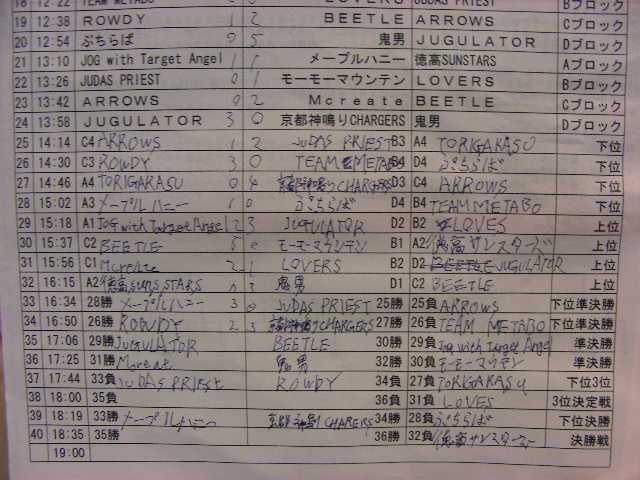 18 12:22 TEAM METABO LOVERS JUDAS PRIEST Bブロック
19 12:38 ROWDY 1 2 BEETLE ARROWS Cブロック
20 12:54 ぷちらば 0 5 鬼男 JUGULATOR Dブロック
21 13:10 JOG with Target Angel 1 1 メープルハニー 徳高SUNSTARS Aブロック
22 13:26 JUDAS PRIEST 0 1 モーモーマウンテン LOVERS Bブロック
23 13:42 ARROWS 0 2 Mcreate BEETLE Cブロック
24 13:58 JUGULATOR 3 0 京都神鳴りCHARGERS 鬼男 Dブロック
25 14:14 C4 ARROWS 1 2 JUDAS PRIEST B3 A4 TORIGARASU 下位
26 14:30 C3 ROWDY 3 0 TEAM METABO B4 D4 ぷちらば 下位
27 14:46 A4 TORIGARASU 0 4 京都神鳴りCHARGERS D3 C4 ARROWS 下位
28 15:02 A3 メープルハニー 1 0 ぷちらば D4 B4 TEAM METABO 下位
29 15:18 A1 JOG with Target Angel 2 3 JUGULATOR D2 B2 LOVES 上位
30 15:37 C2 BEETLE 5 0 モーモーマウンテン B1 A2 徳高サンスターズ 上位
31 15:56 C1 Mcreate 2 1 LOVERS B2 D2 JUGULATOR 上位
32 16:15 A2 徳高SUNSTARS 0 3 鬼男 D1 C2 BEETLE 上位
33 16:34 28勝 メープルハニー 3 0 JUDAS PRIEST 25勝 25負 ARROWS 下位準決勝
34 16:50 26勝 ROWDY 2 3 京都神鳴りCHARGERS 27勝 26負 TEAM METABO 下位準決勝
35 17:06 29勝 JUGULATOR BEETLE 30勝 29負 Jog with Target Angel 準決勝
36 17:25 31勝 Mcreat 鬼男 32勝 30負 モーモーマウンテン 準決勝
37 17:44 33負 JUDAS PRIEST ROWDY 34負 27負 TORIGARASU 下位3位
38 18:00 35負 36負 31負 LOVES 3位決定戦
39 18:19 33勝 メープルハニー 京都神鳴りCHARERS 34勝 28負 ぷちらば 下位決勝
40 18:35 35勝 36勝 32負 徳高サンスターズ 決勝戦
19:00